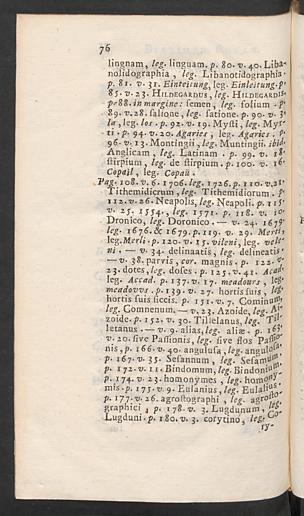 76
lingnam, leg. linguam. p. 80. v. 40. Liba-
nosidographia, leg. Libanotidographia.
p. 81. v. 31. Einteitung, leg. Einleitung. p.
85. v. 23. HILDEGARDUS, leg. HILDEGARDIS.
p. 88. in margine: semen, leg. folium. p.
89. v. 28. salione, leg. satione. p. 90. v. 3.
la, leg. los. p. 92. v. 19. Mysti, leg. Mys-
ti. p. 94. v. 20. Agaries, leg. Agaries. p.
96. v. 13. Montingii, leg. Muntingii. ibid.
Anglicam, leg. Latinam. p. 99. v. 18.
stirpium, leg. de stirpium. p. 100. v. 16.
Copajl, leg. Copaü.
Pag. 108. v. 6. 1706. leg. 1726. p. 110. v. 21.
Tithemidicrum, leg. Tithemidlorum. p.
112. v. 26. Neapolis, leg. Neapoli. p. 115.
v. 25. 1554, leg. 1571. p. 118. v. 10.
Dronico, leg. Doronico. — v. 24. 1679
leg. 1676. & 1679. p. 119. v. 29. Merti,
leg. Merli. p. 120. v. 15. vileni, leg. vele-
ni. — v. 34. delinaatis, leg. delineatis.
— v. 38. parvis, cor. magnis. p. 122. v.
23. dotes, leg. doses. p. 125. v. 41. Acad.
leg. Accad. p. 137. v. 17. meadours, leg.
meadovvs. p. 139. v. 27. hortis suis, leg.
hortis suis siccis. p. 151. v. 7. Cominum,
leg. Comnenum. — v. 23. Azoide, leg. Ai-
zoide. p. 152. v. 30. Tillelanus, leg. Til-
letanus. — v. 9. alias, leg. aliæ p. 163.
v. 20. sive Passionis, leg. sive flos Passio-
nis, p. 166. v. 40. angulusa, leg. angulosa.
p. 167. v. 35. Sesannum, leg. Sesamum.
p. 172. v. 11. Bindomum, leg. Bindonium.
p. 174. v. 23. homonymes, leg. homony-
mis. p. 175. v. 9. Eusanius, leg. Eulalius.
p. 177. v. 26. agrostographi, leg. agrosto-
graphici, p. 178. v. 3. Lugdunum, leg.
Lugduni. p. 180. v. 3. cotytino, leg. Co-
ty-